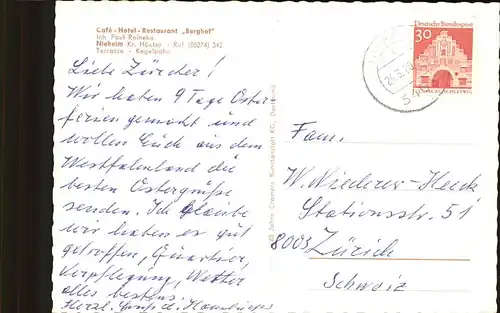 Café - Hotel - Restaurant „Berghof"
Inh. Paul Reineke
Nieheim Kr. Höxter - Ruf (05274) 342
Terrasse - Kegelbahn
Liebe Zürcher!
Wir haben 9 Tage Oster
ferien gemacht und
wollen Euch aus dem
Westfalenland die
besten Ostergrüße
senden. Ich glaube
wir haben es gut
getroffen, Quartier,
Verpflegung, Wetter
alles bestens.
Herzl. Grüße d.
Cramers Kunstanstalt KG, Dortmund
Deutsche Bundespost
30
Fam.
W. Niederer-Heck
Stationsstr. 51
8003 Zürich
Schweiz